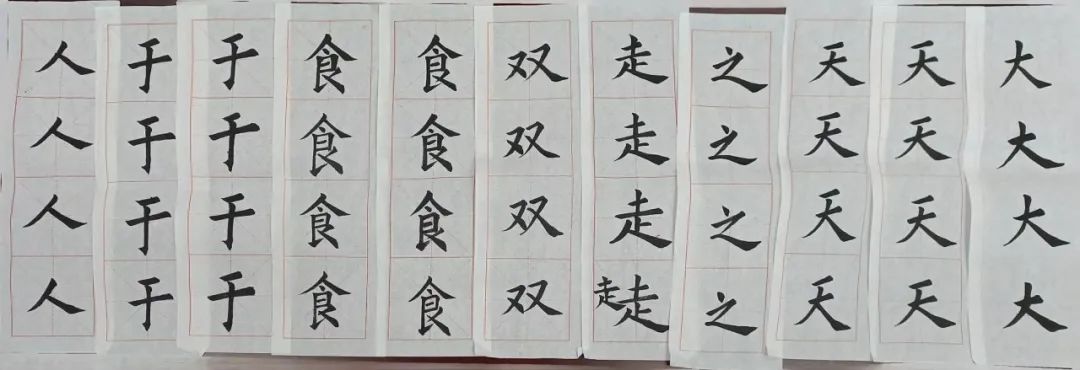 大大大大
天天天天
天天天天
之之之之
走走走走走
双双双双
食食食食
食食食食
于于于于
于于于于
人人人人